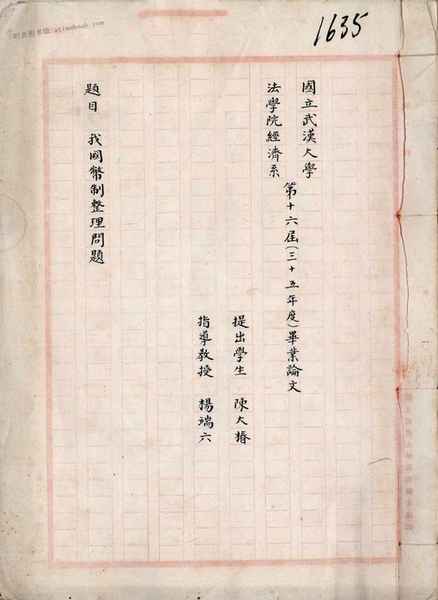 1635
國立武漢大學
法學院經濟系
第十六屆(三十五年度)畢業論文
提出學生 陳大椿
指導教授 楊端六
題目 我國幣制整理問題